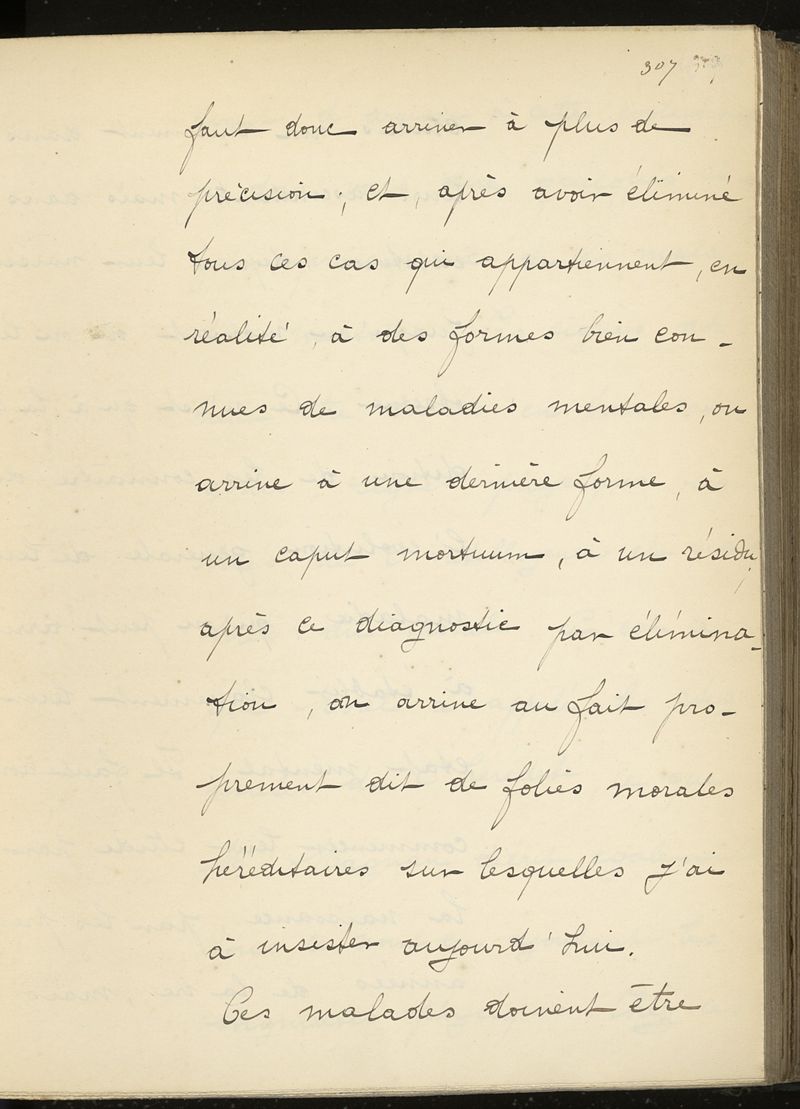 307
faut donc arriver à plus de
précision ; et, après avoir éliminé
tous ces cas qui appartiennent, en
réalité, à des formes bien con-
nues de maladies mentales, on
arrive à une dernière forme, à
un caput mortuum, à un résidu ;
après ce diagnostic par élimina-
tion, on arrive au fait pro-
prement dit de folies morales
héréditaires sur lesquelles j'ai
à insister aujourd'hui.
Ces malades doivent être